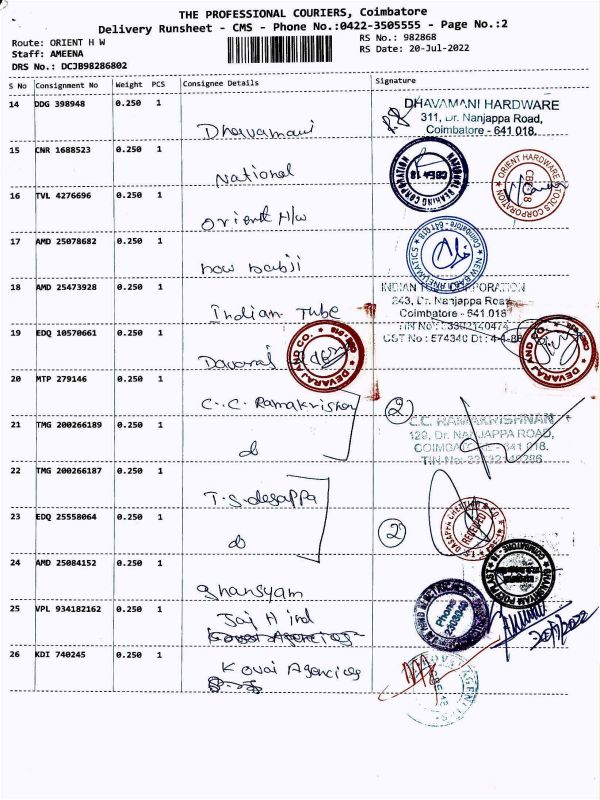 THE PROFESSIONAL COURIERS, Coimbatore
Delivery Runsheet - CMS - Phone No.:0422-3505555 - Page No.:2
Route: ORIENT H W
Staff: AMEENA
DRS No.: DCJB98286802
RS No.: 982868
RS Date: 20-Jul-2022
S No Consignment No Weight PCS Consignee Details Signature
14 DDG 398948 0.250 1 Dhavamani
DHAVAMANI HARDWARE
311, Dr. Nanjappa Road,
Coimbatore - 641 018.
15 CNR 1688523 0.250 1 National
NATIONAL BEARING CORPORATION
CBE-18
ORIENT HARDWARE TOOLS CORPORATION
CBE-18
16 TVL 4276696 0.250 1 Orient H/w
17 AMD 25078682 0.250 1
Coimbatore - 641 018
18 AMD 25473928 0.250 1 Indian Tube
INDIAN TUBE CORPORATION
243, Dr. Nanjappa Road
Coimbatore - 641 018
TIN No : 3302140474
CST No : 574340 Dt :
19 EDQ 10570661 0.250 1 Davaraj
DEVARAJ AND CO.
DEVARAJ AND CO.
20 MTP 279146 0.250 1 C. C. Ramakrishnan
2
C.C. RAMAKRISHNAN
129, Dr. NANJAPPA ROAD,
COIMBATORE - 641 018.
21 TMG 200266189 0.250 1 do
22 TMG 200266187 0.250 1 T.S. desappa
23 EDQ 25558064 0.250 1 do
2
RECEIVED
24 AMD 25084152 0.250 1 ghansyam
25 VPL 934182162 0.250 1 Jai Hind
Kovai Agencies
Phone
20/7/2022
26 KDI 740245 0.250 1 Kovai Agencies